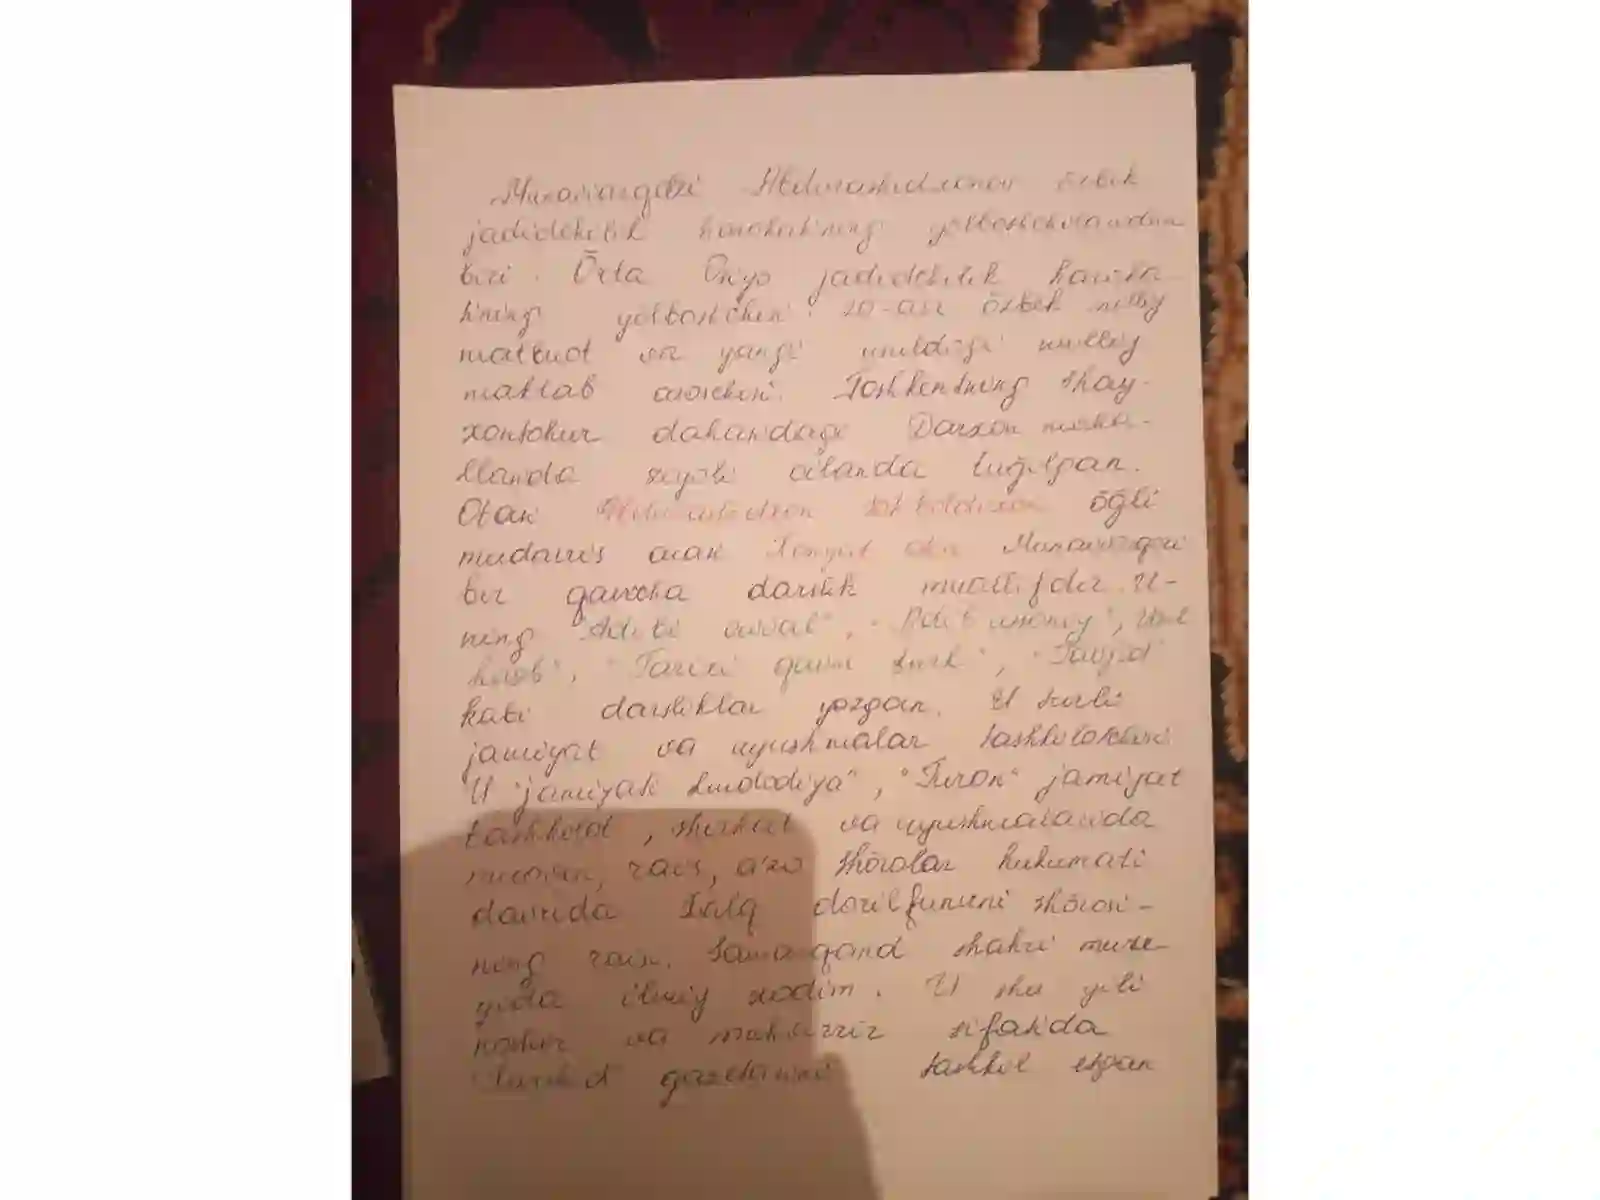 Munavvarqori Abdurashidxonov õzbek
jadidchilik harakatining yõlboshchilaridan
biri. Õrta Osiyo jadidchilik haraka-
tining yõlboshchisi. 20-asr õzbek milliy
matbuot va yangi usuldagi milliy
maktab asoschisi. Toshkentning Shay-
xontohur dahasidagi Darxon maha-
llasida ziyoli oilasida tuğilgan.
Otasi õğli
mudarris onasi Xosiyat otin Munavvarqori
bir qancha darslik muallifidir. U-
ning "Adibi avval", "Adibi soniy", Usul
hisob", "Tarixi qavmi turk", "Tavjid"
kabi darsliklar yozgan. U turli
jamiyat va uyushmalar tashkilotchisi
U "jamiyati Imdodiya", "Turon" jamiyat
tashkilot, shirkat va uyushmalarida
muovin, rais, a'zo Shõrolar hukumati
davrida Xalq dorilfununi shõrosi-
ning raisi. Samarqand shahri muze-
yida ilmiy xodim. U shu yili
noshir va muharrir sifatida
"Xurshid" gazetasini tashkil etgan